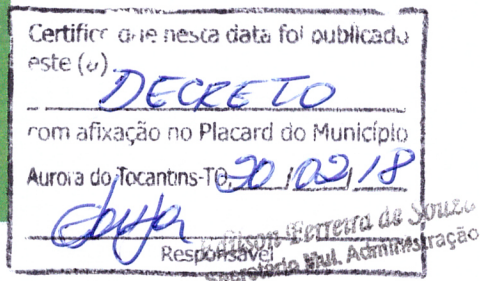 Certifico que nesta data foi publicado
este (o)
DECRETO
com afixação no Placard do Município
Aurora do Tocantins-TO, 20 / 02 / 18
Responsável
Ferreira de Souza
Mul. Administração